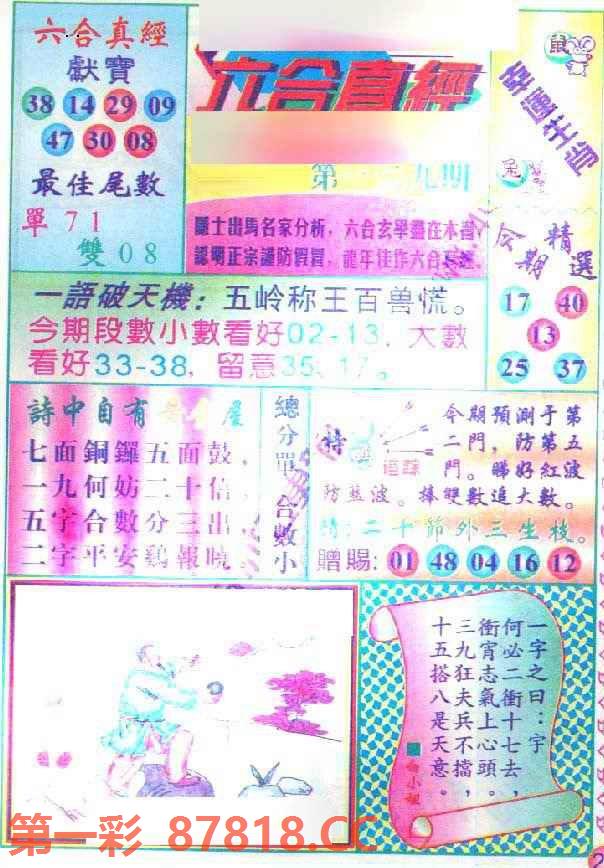 六合真經
獻寶
38 14 29 09
47 30 08
最佳尾數
單 71
雙 08
六合真經
九期
隱士出馬名家分析，六合玄學盡在本書
認明正宗謹防假冒，龍年佳作六合真經
鼠
幸運生肖
兔
今期精選
17 40
13
25 37
一語破天機：五岭称王百兽慌。
今期段數小數看好02-13，大數
看好33-38，留意35、17。
詩中自有
七面銅鑼五面鼓，
一九何妨二十倍，
五字合數分三出，
二字平安鷄報曉。
總分單
合數小
特
追踪
今期預測于第
二門，防第五
門。睇好紅波
防藍波。捧雙數追大數。
詩：二十節外三生枝。
贈賜：01 48 04 16 12
一字之曰：宇
何必二衝十七去，
衝宵志氣上心頭。
三九狂夫兵不擋，
十五搭八是天意。
小姐
第一彩 87818.CC